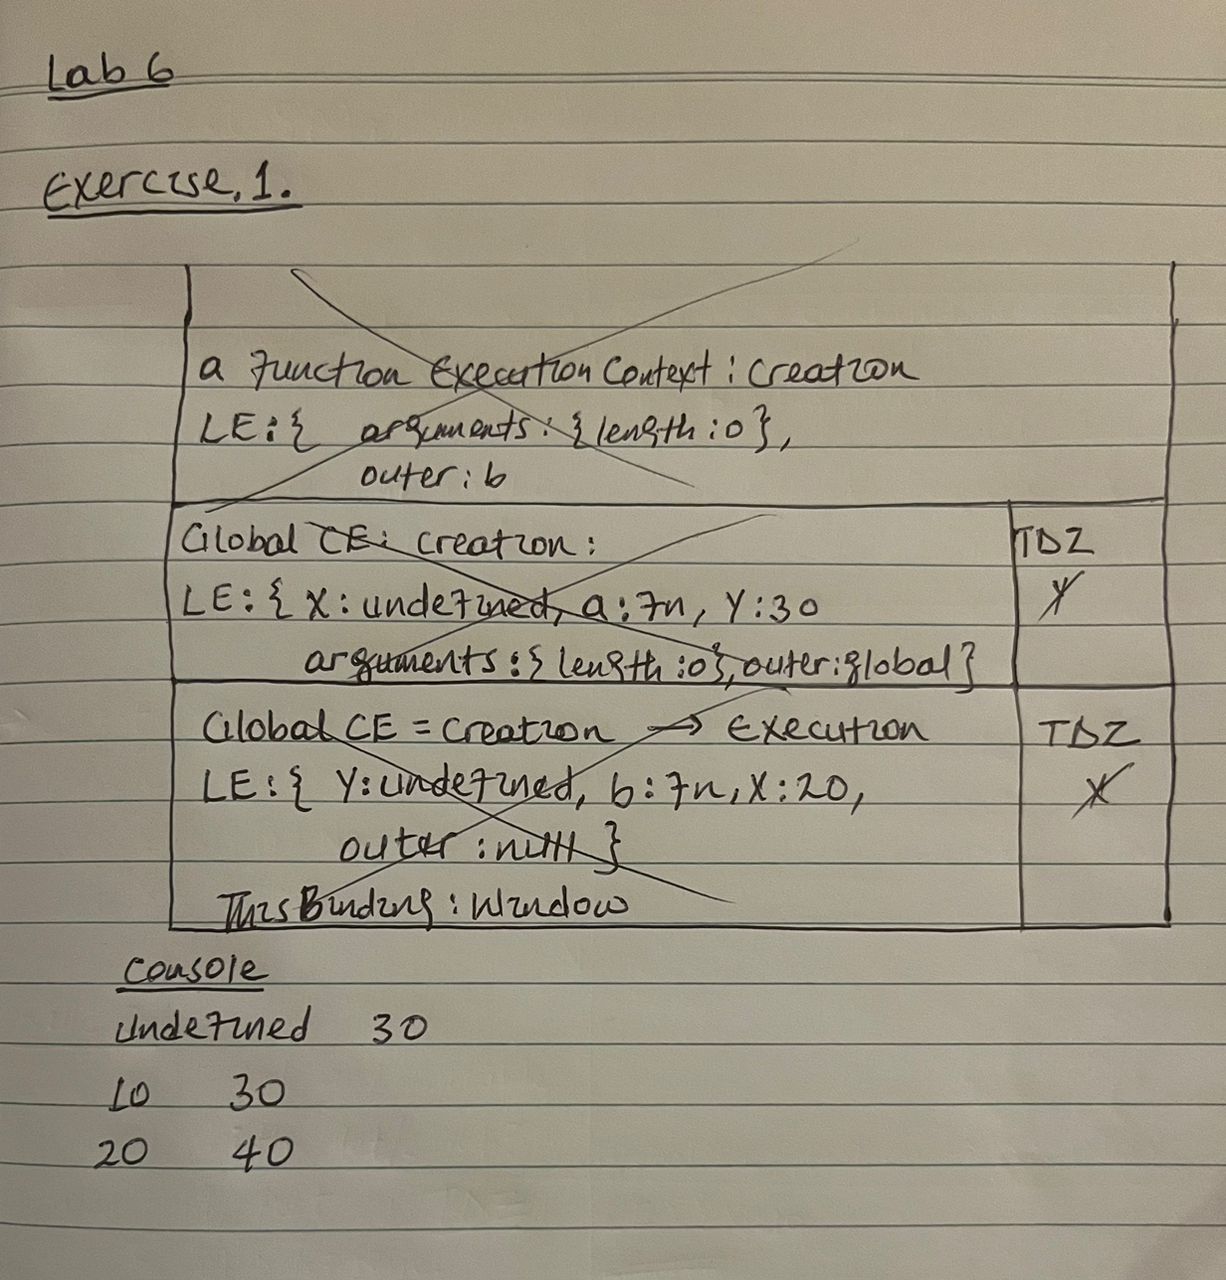 Lab 6
Exercise.1.
a Function Execution Context: Creation
LE:{ arguments: {length:0},
outer: b
Global CE: Creation: TDZ
LE:{ X: undefined, a: Fn, Y:30 Y
arguments:{length:0}, outer:global}
Global CE = Creation → Execution TDZ
LE:{ Y:undefined, b:Fn, X:20, X
outer :null }
ThisBinding: Window
Console
Undefined 30
10 30
20 40